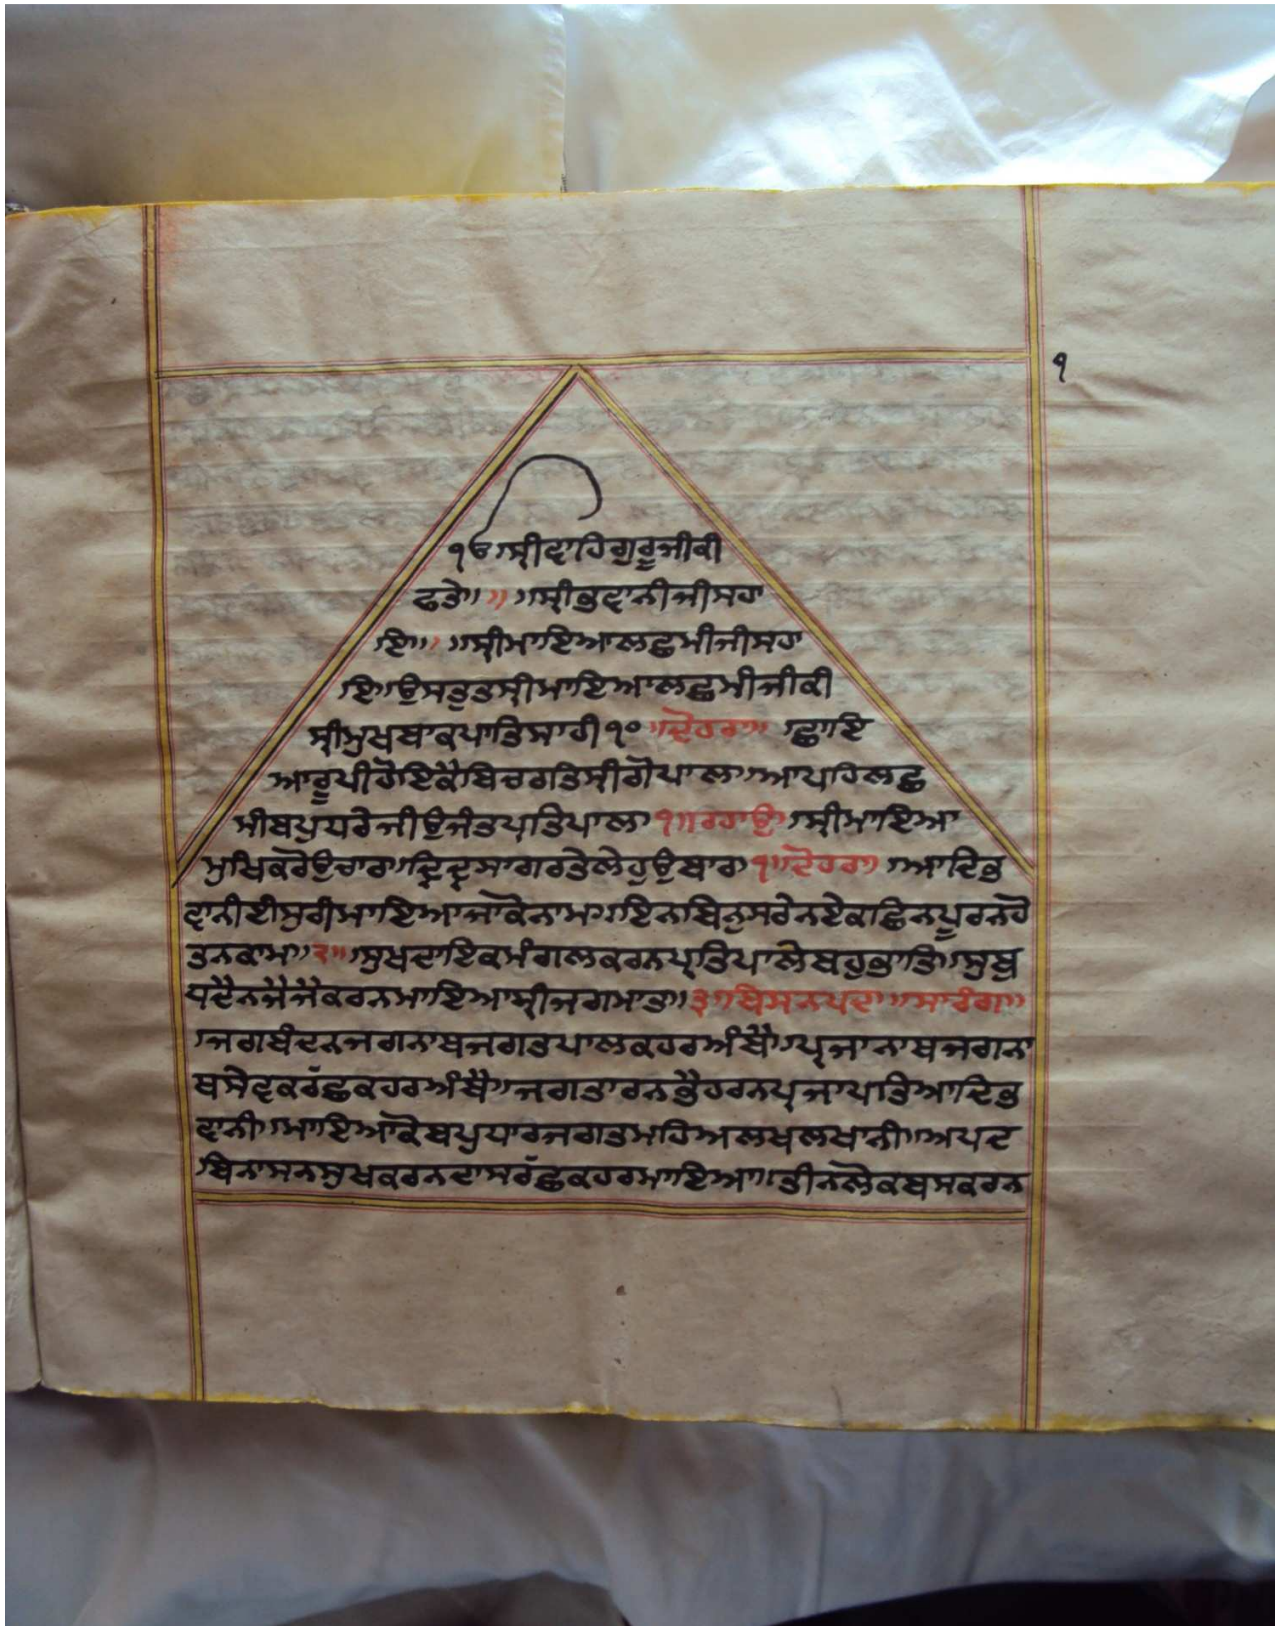 ੧
ੴ ਸ੍ਰੀ ਵਾਹਿਗੁਰੂ ਜੀ ਕੀ
ਫਤੇ॥ ॥ ॥ਸ੍ਰੀ ਭਵਾਨੀ ਜੀ ਸਹਾ
ਇ॥ ॥ਸ੍ਰੀ ਮਾਇਆ ਲਛਮੀ ਜੀ ਸਹਾ
ਇ॥ ਉਸਤੁਤ ਸ੍ਰੀ ਮਾਇਆ ਲਛਮੀ ਜੀ ਕੀ
ਸ੍ਰੀ ਮੁਖਬਾਕ ਪਾਤਿਸਾਹੀ ੧੦ ॥ਦੋਹਰਾ॥ ਛਾਇ
ਆ ਰੂਪੀ ਹੋਇ ਕੈ ਬਿਚਰਤਿ ਸ੍ਰੀ ਗੋਪਾਲ॥ ਆਪਹਿ ਲਛ
ਮੀ ਬਪੁ ਧਰੇ ਜੀਉ ਜੰਤ ਪ੍ਰਤਿਪਾਲ ੧॥ਰਹਾਉ॥ ਸ੍ਰੀ ਮਾਇਆ
ਮੁਖਿ ਕਰੋ ਉਚਾਰਾ॥ ਦ੍ਰਿਵ ਸਾਗਰ ਤੇ ਲੇਹੁ ਉਬਾਰਾ ੧॥ਦੋਹਰਾ॥ ਆਦਿ ਭ
ਵਾਨੀ ਈਸੁਰੀ ਮਾਇਆ ਜਾ ਕੋ ਨਾਮ॥ ਇਨ ਬਿਨੁ ਸਰੇ ਨ ਏਕ ਛਿਨ ਪੂਰਨ ਹੋ
ਤ ਨ ਕਾਮ॥੨॥ ਸੁਖਦਾਇਕ ਮੰਗਲ ਕਰਨ ਪ੍ਰਤਿਪਾਲੇ ਬਹੁ ਭਾਤਿ॥ ਸੁਬੁ
ਧ ਦੈਨ ਜੈ ਜੈ ਕਰਨ ਮਾਇਆ ਸ੍ਰੀ ਜਗਮਾਤ॥੩॥ ਬਿਸਨਪਦਾ ॥ਸਾਰੰਗ॥
ਜਗਬੰਦਨ ਜਗਨਾਥ ਜਗਤ ਪਾਲਕ ਹਰ ਅੰਬੈ॥ ਪ੍ਰਜਾਨਾਥ ਜਗਨਾ
ਥ ਸੇਵਕ ਰੱਛਕ ਹਰ ਅੰਬੈ॥ ਜਗ ਤਾਰਨ ਭੈ ਹਰਨ ਪ੍ਰਜਾਪਤਿ ਆਦਿ ਭ
ਵਾਨੀ॥ ਮਾਇਆ ਕੋ ਬਪੁ ਧਾਰ ਜਗਤ ਮਹਿ ਅਲਖ ਲਖਾਨੀ॥ ਅਪਦ
ਬਿਨਾਸਨ ਸੁਖ ਕਰਨ ਦਾਸ ਰੱਛਕ ਹਰ ਮਾਇਆ॥ ਤੀਨ ਲੋਕ ਬਸ ਕਰਨ